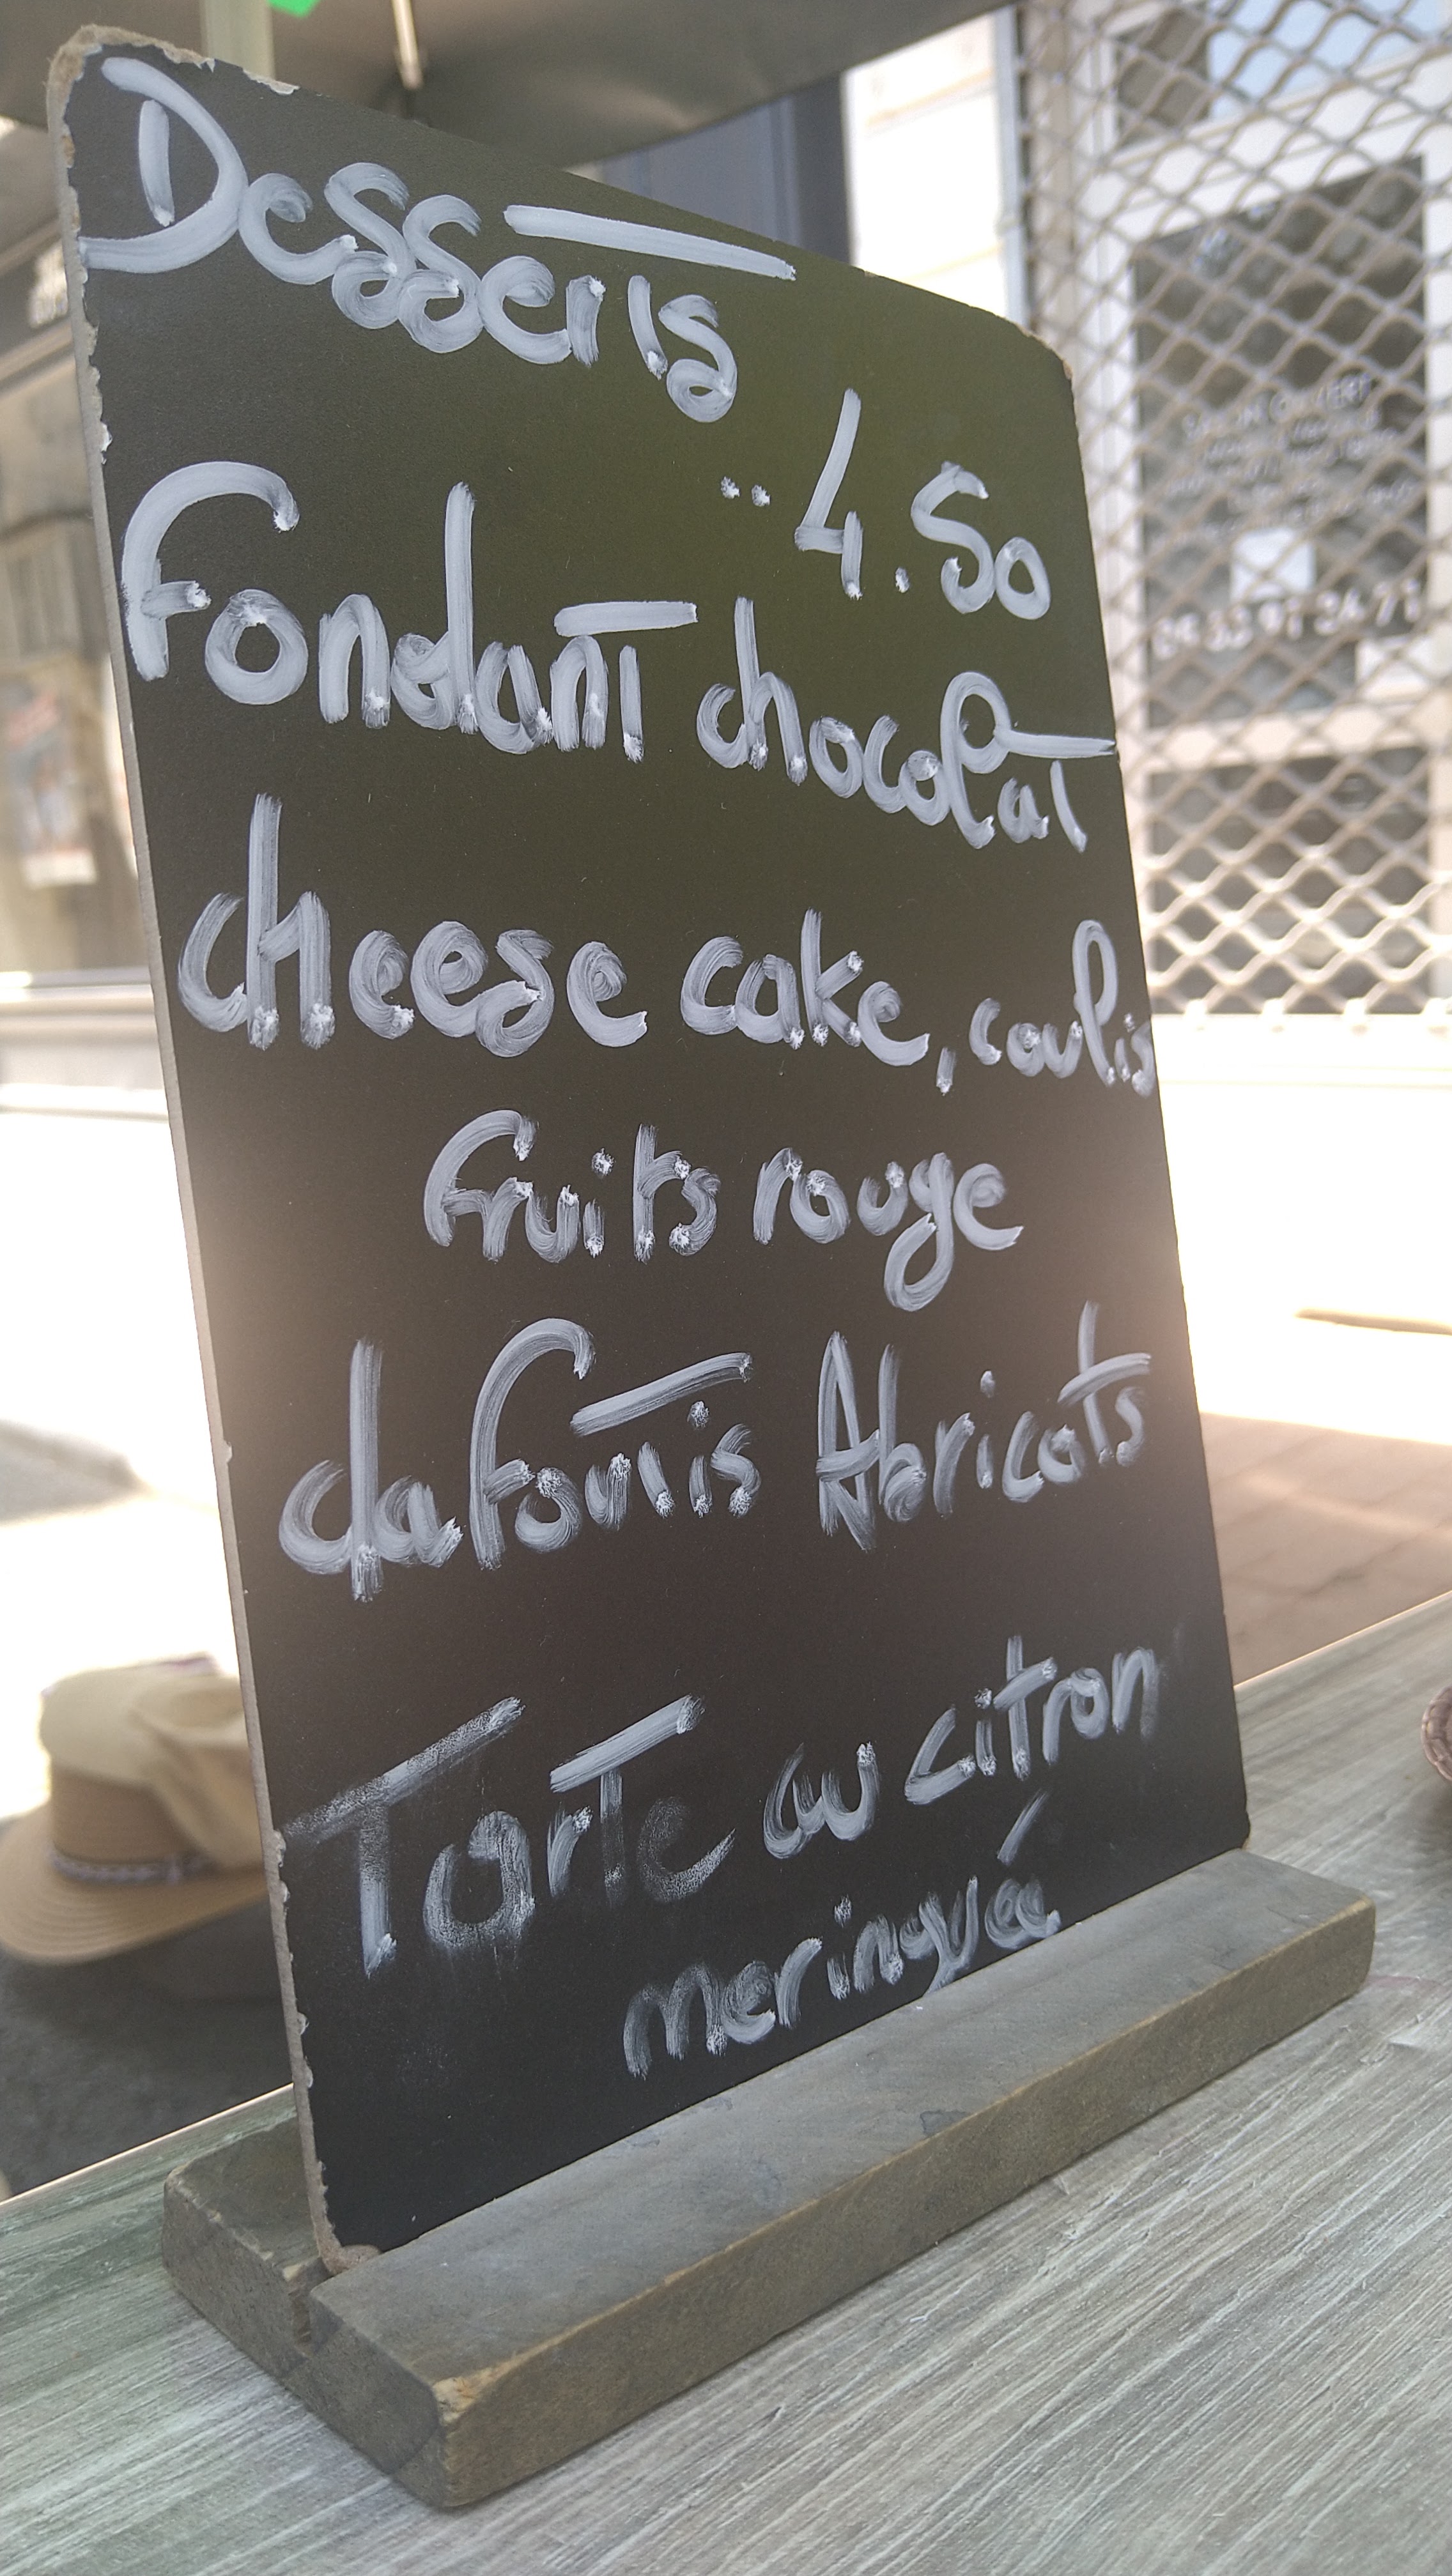 Desserts
.. 4.50
Fondant chocolat
cheese cake, coulis
fruits rouge
dafoutis Abricots
Tarte au citron
meringuée